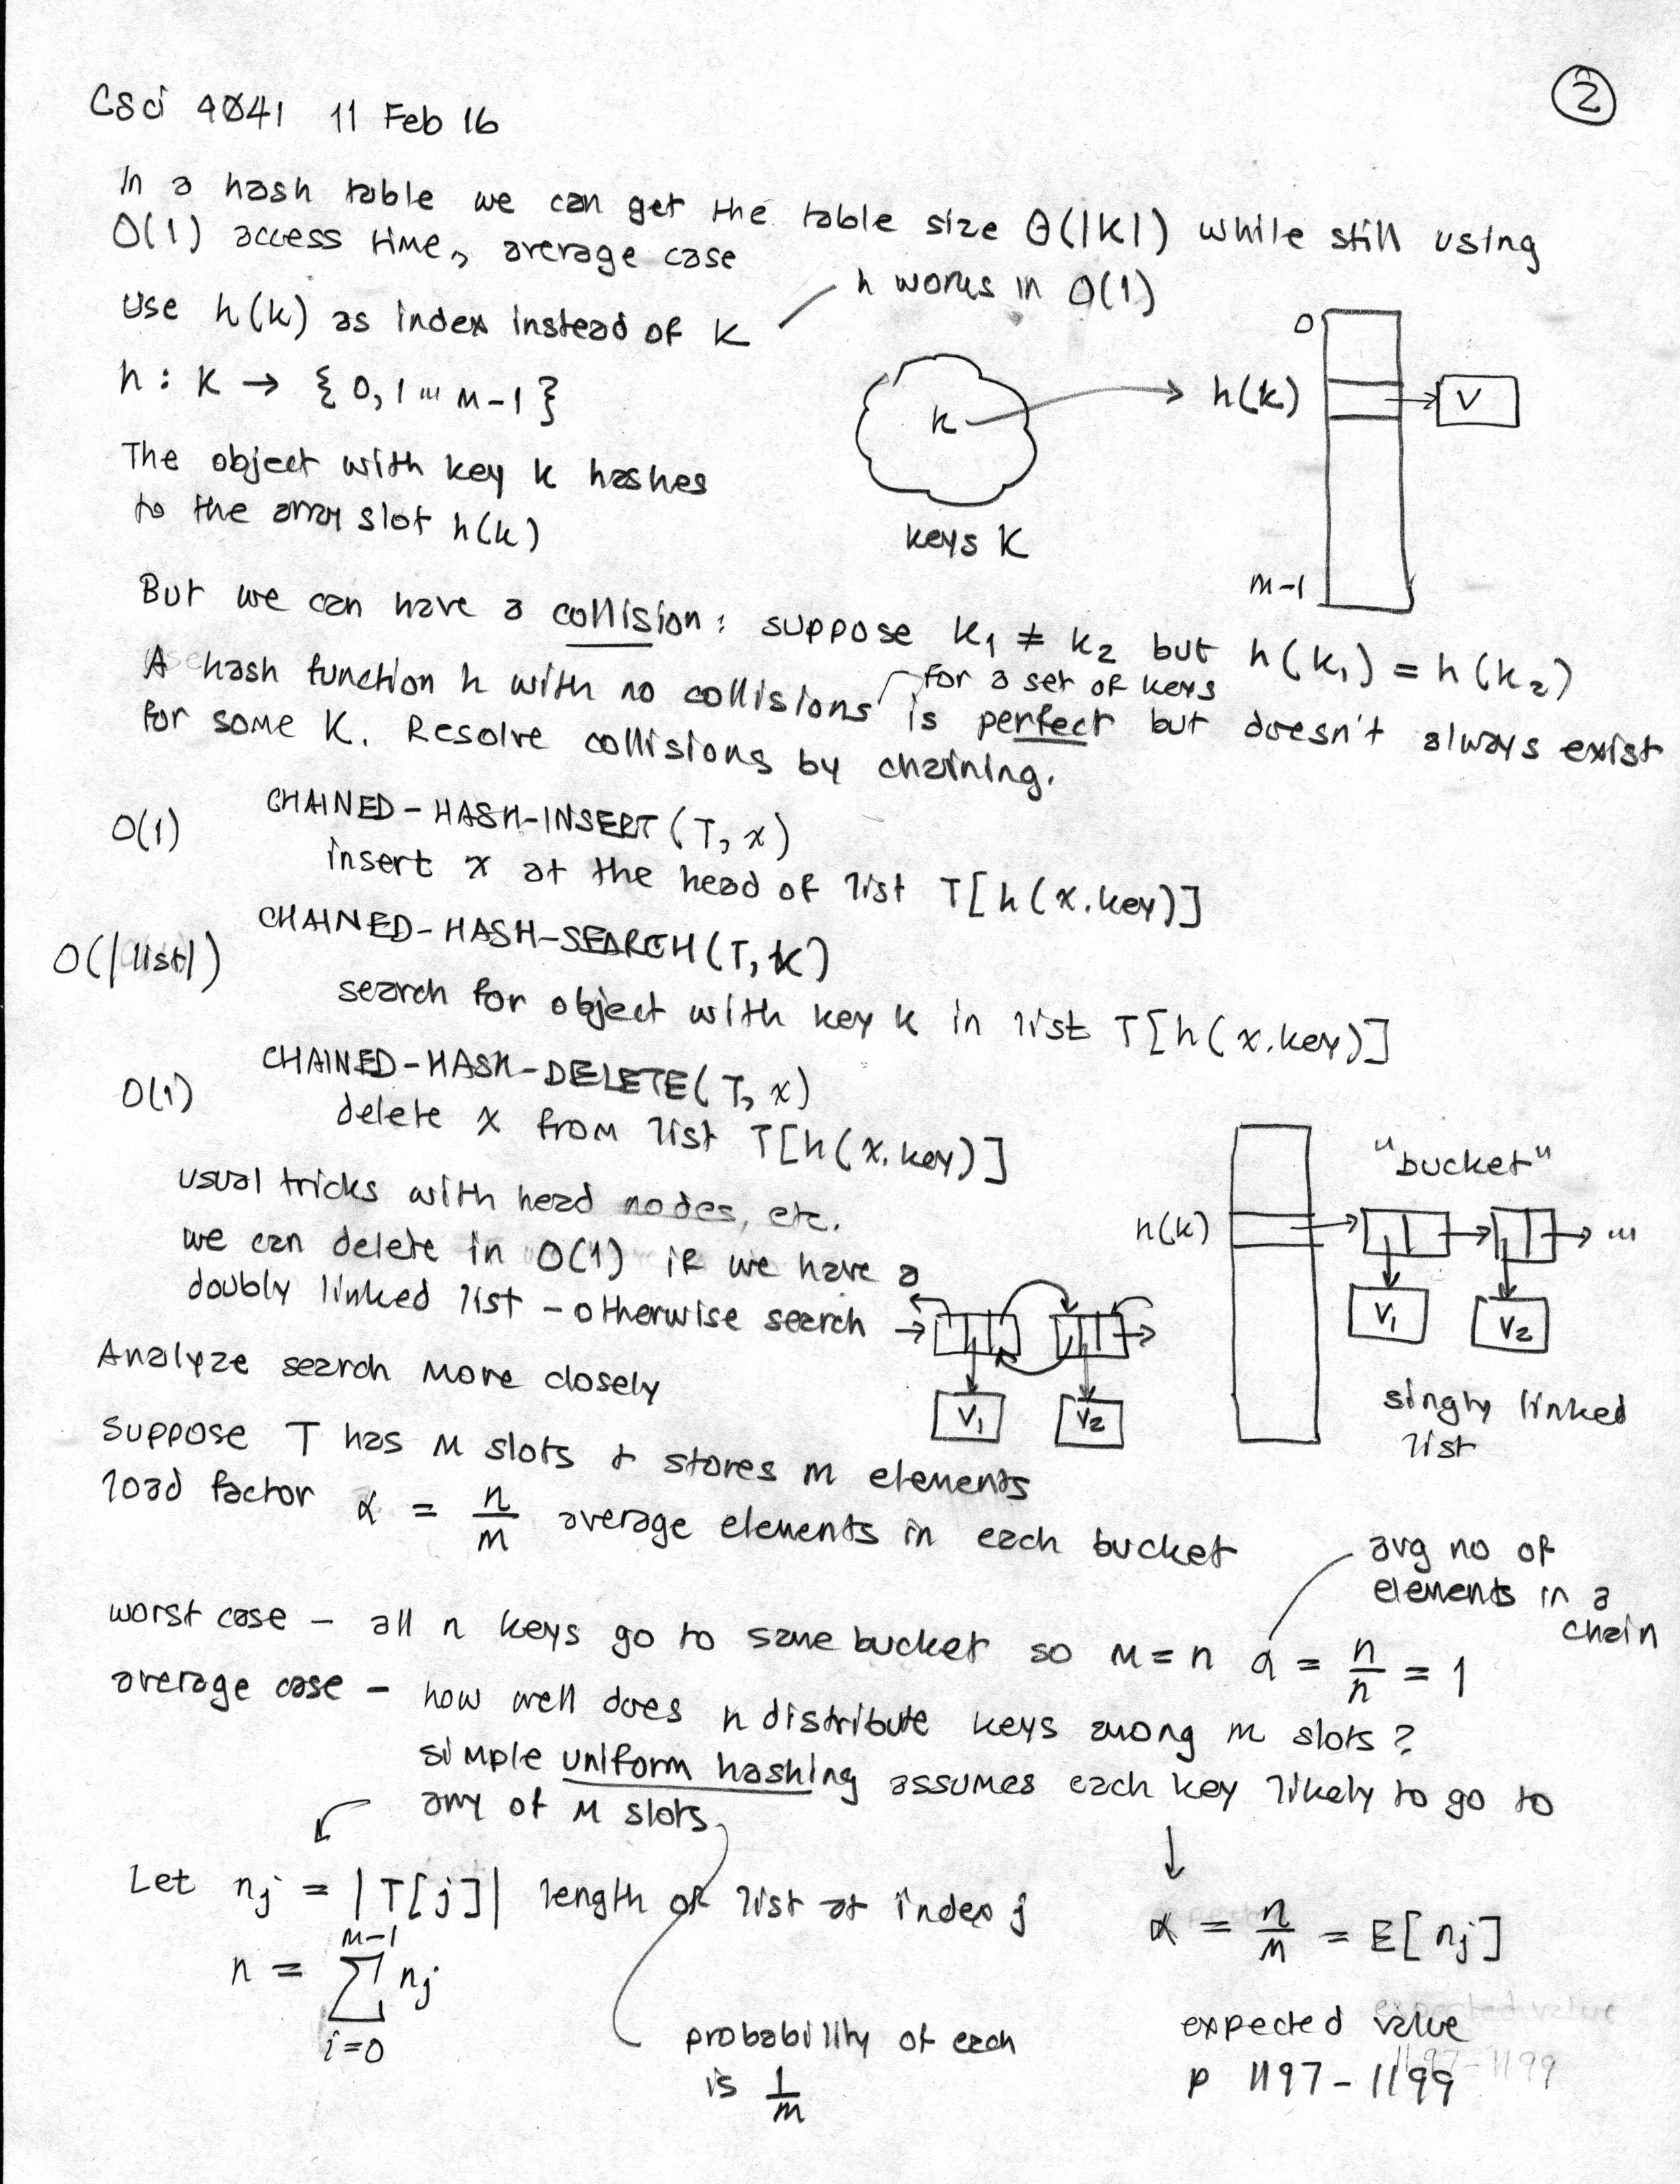 CSci 4041 11 Feb 16
2
In a hash table we can get the table size Θ(|K|) while still using
O(1) access time, average case
h works in O(1)
Use h(k) as index instead of k
h : K → {0, 1 ... m-1}
0
k
h(k)
V
The object with key k hashes
to the array slot h(k)
keys K
m-1
But we can have a collision: suppose k₁ ≠ k₂ but h(k₁) = h(k₂)
for a set of keys
A hash function h with no collisions is perfect but doesn't always exist
for some K. Resolve collisions by chaining.
CHAINED-HASH-INSERT(T, x)
O(1)
insert x at the head of list T[h(x.key)]
CHAINED-HASH-SEARCH(T, k)
O(|list|)
search for object with key k in list T[h(x.key)]
CHAINED-HASH-DELETE(T, x)
O(1)
delete x from list T[h(x.key)]
"bucket"
usual tricks with head nodes, etc.
h(k)
...
we can delete in O(1) if we have a
doubly linked list - otherwise search
V₁
V₂
Analyze search more closely
V₁
V₂
singly linked
list
Suppose T has m slots + stores m elements
load factor α = n/m average elements in each bucket
avg no of
elements in a
chain
worst case - all n keys go to same bucket so m = n α = n/n = 1
average case - how well does h distribute keys among m slots?
simple uniform hashing assumes each key likely to go to
any of m slots
Let nj = |T[j]| length of list at index j
α = n/m = E[nj]
m-1
n = ∑ nj
i=0
probability of each
is 1/m
expected value
p 1197-1199